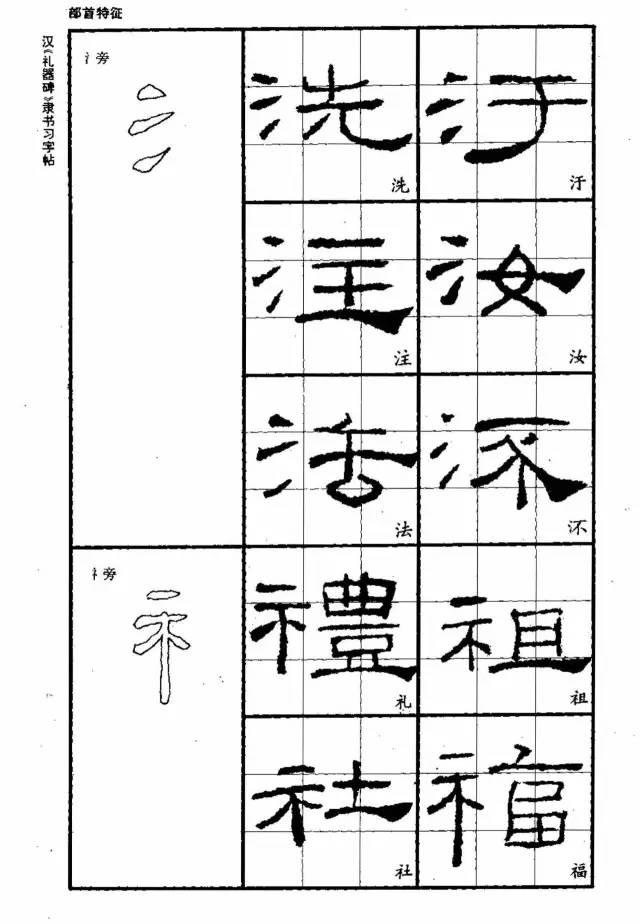 部首特征
汉《礼器碑》隶书习字帖
氵旁
洗 汙
洗 汙
注 汝
注 汝
法 㳅
法 㳅
礻旁
禮 祖
礼 祖
社 福
社 福